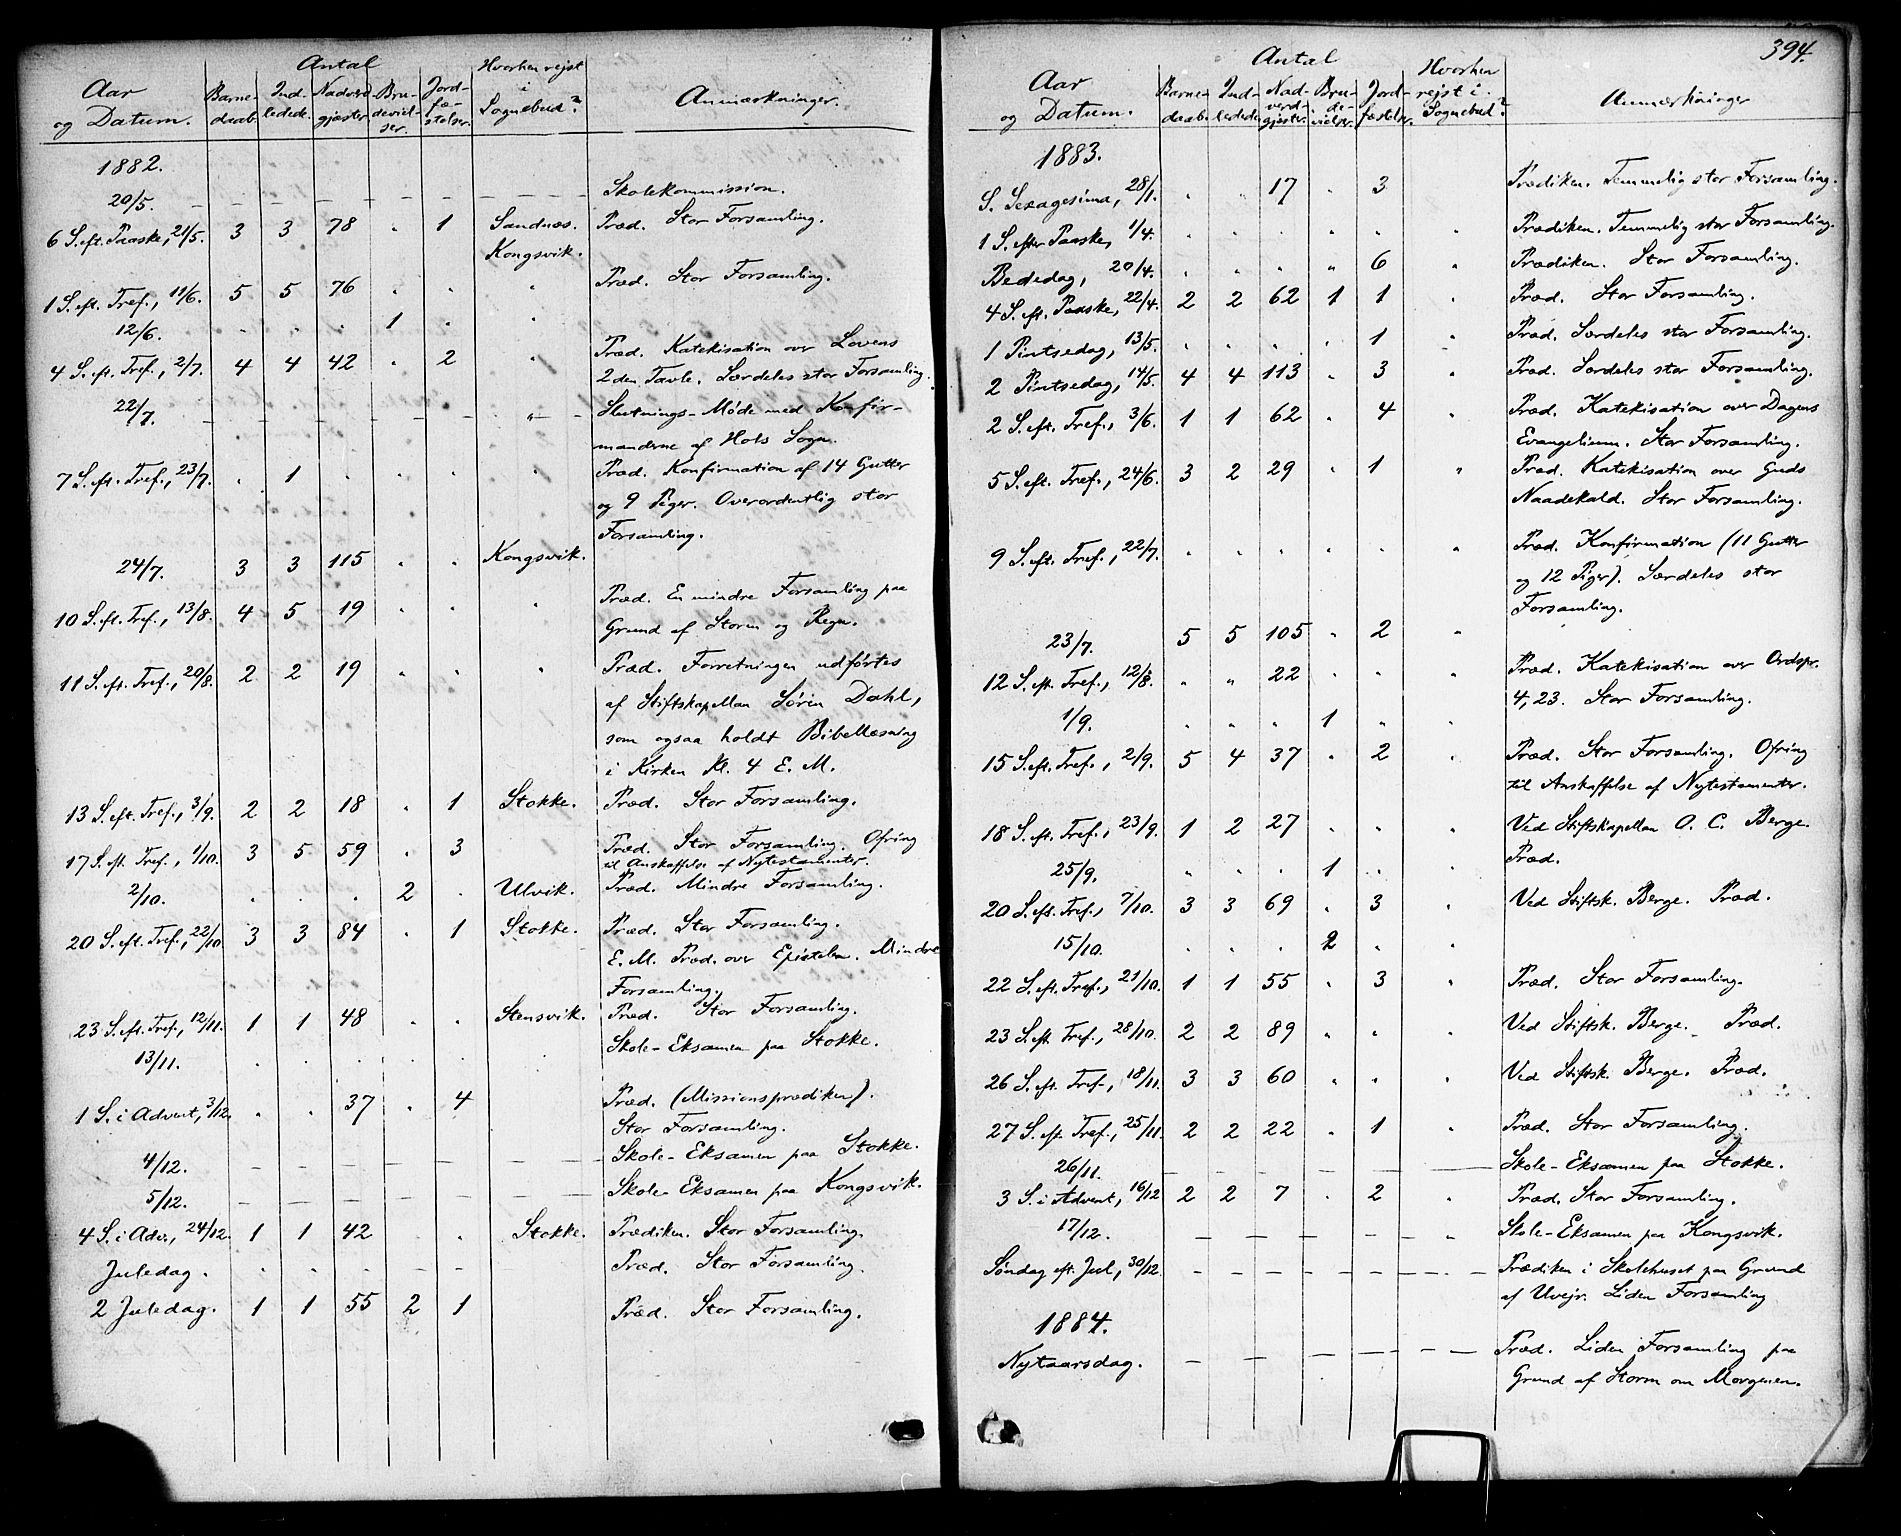 394.
Antal
Aar og Datum. Barnedaab. Indledede. Nadverdgjæster. Brudevielser. Jordfæstelser. Hvorhen rejst i Sognebud? Anmærkninger.
1882.
20/5. – – – – – – Skolekommission.
6 S. eft. Paaske, 21/5. 3 3 78 . 1 Sandnæs. Præd. Stor Forsamling.
Kongsvik.
1 S. eft. Tref., 11/6. 5 5 76 . . " Præd. Stor Forsamling.
12/6. . . . 1 . "
4 S. eft. Tref., 2/7. 4 4 42 . 2 " Præd. Katekisation over Lovens
2den Tavle. Særdeles stor Forsamling.
22/7. – – – – – " – Slutnings-Møde med Konfir-
manderne af Hols Sogn.
7 S. eft. Tref., 23/7. . 1 . . . " Præd. Konfirmation af 14 Gutter
og 9 Piger. Overordentlig stor
Forsamling.
24/7. 3 3 115 . . Kongsvik.
10 S. eft. Tref., 13/8. 4 5 19 . . . Præd. En mindre Forsamling paa
Grund af Storm og Regn.
11 S. eft. Tref., 20/8. 2 2 19 . . . Præd. Forretningen udførtes
af Stiftskapellan Sören Dahl,
som ogsaa holdt Bibellæsning
i Kirken Kl. 4 E. M.
13 S. eft. Tref., 3/9. 2 2 18 . 1 Stokke. Præd. Stor Forsamling.
17 S. eft. Tref., 1/10. 3 5 59 . 3 Præd. Stor Forsamling. Ofring
til Anskaffelse af Nytestamenter.
2/10. . . . 2 . Ulvik. Præd. Mindre Forsamling.
20 S. eft. Tref., 22/10. 3 3 84 . 1 Stokke. Præd. Stor Forsamling.
E. M. Præd. over Epistelen. Mindre
Forsamling.
23 S. eft. Tref., 12/11. 1 1 48 . . Stensvik. Præd. Stor Forsamling.
13/11. . . . . . . Skole-Eksamen paa Stokke.
1 S. i Advent, 3/12. . . 37 . 4 Præd. (Missionsprædiken).
Stor Forsamling.
4/12. – – – – – – Skole-Eksamen paa Stokke.
5/12. – – – – – – Skole-Eksamen paa Kongsvik.
4 S. i Adv., 24/12. 1 1 42 . . Stokke. Prædiken. Stor Forsamling.
Juledag. . . . . . Præd. Stor Forsamling.
2 Juledag. 1 1 55 2 1 Præd. Stor Forsamling.
Antal
Aar og Datum. Barnedaab. Indledede. Nadverdgjæster. Brudevielser. Jordfæstelser. Hvorhen rejst i Sognebud? Anmærkninger
1883.
S. Sexagesima, 28/1. . . 17 . 3 Prædiken. Temmelig stor Forsamling.
1 S. efter Paaske, 1/4. . . . . . . Prædiken. Temmelig stor Forsamling.
Bededag, 20/4. . . . . 6 " Prædiken. Stor Forsamling.
4 S. eft. Paaske, 22/4. 2 2 62 1 1 . Præd. Stor Forsamling.
1 Pintsedag, 13/5. . . . . 1 . Præd. Særdeles stor Forsamling.
2 Pintsedag, 14/5. 4 4 113 . 3 . Præd. Særdeles stor Forsamling.
2 S. eft. Tref., 3/6. 1 1 62 . 4 . Præd. Katekisation over Dagens
Evangelium. Stor Forsamling.
5 S. eft. Tref., 24/6. 3 2 29 . 1 " Præd. Katekisation over Guds
Naadekald. Stor Forsamling.
9 S. eft. Tref., 22/7. . . . . . " Præd. Konfirmation (11 Gutter
og 12 Piger). Særdeles stor
Forsamling.
23/7. 5 5 105 . 2 "
12 S. eft. Tref., 12/8. . . 22 . . . Præd. Katekisation over Ordspr.
4, 23. Stor Forsamling.
1/9. . . . 1 . .
15 S. eft. Tref., 2/9. 5 4 37 . 2 . Præd. Stor Forsamling. Ofring
til Anskaffelse af Nytestamenter.
18 S. eft. Tref., 23/9. 1 2 27 . . . Ved Stiftskapellan O. C. Berge.
Præd.
25/9. . . . 1 . .
20 S. eft. Tref., 7/10. 3 3 69 . 3 . Ved Stiftsk. Berge. Præd.
15/10. . . . 2 . .
22 S. eft. Tref., 21/10. 1 1 55 . 3 . Præd. Stor Forsamling.
23 S. eft. Tref., 28/10. 2 2 89 . . . Ved Stiftsk. Berge. Præd.
26 S. eft. Tref., 18/11. 3 3 60 . . . Ved Stiftsk. Berge. Præd.
27 S. eft. Tref., 25/11. 2 2 22 . 1 . Præd. Stor Forsamling.
26/11. – – – – – – Skole-Eksamen paa Stokke.
3 S. i Advent, 16/12. 2 2 7 . 2 . Præd. Stor Forsamling.
17/12. – – – – – . Skole-Eksamen paa Kongsvik.
Søndag eft. Jul, 30/12. – – – – – – Prædiken i Skolehuset paa Grund
af Uvejr. Liden Forsamling
1884.
Nytaarsdag. – – – – – – Præd. Liden Forsamling paa
Grund af Storm om Morgenen.